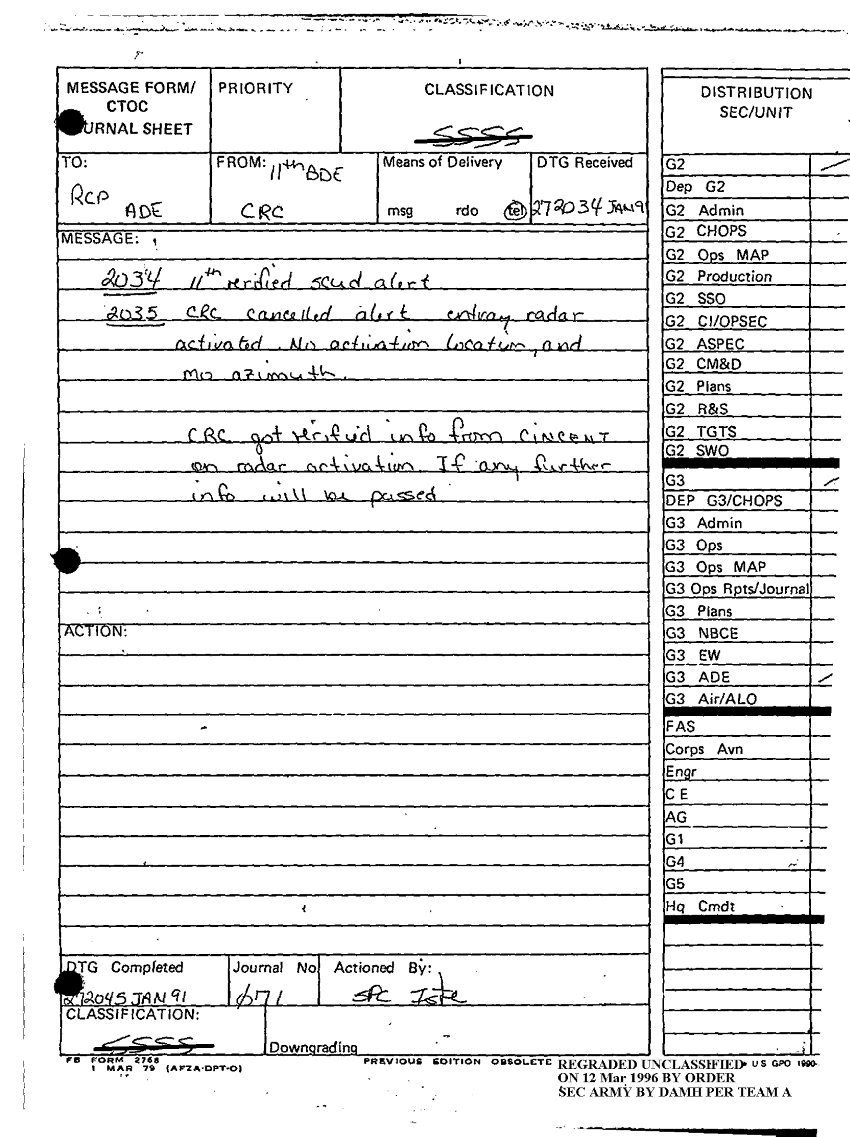 MESSAGE FORM/
CTOC
URNAL SHEET
PRIORITY
CLASSIFICATION
SSSS
TO:
RCP
ADE
FROM: 11th BDE
CRC
Means of Delivery
msg rdo tel
DTG Received
272034 JAN91
MESSAGE:
2034 11th verified scud alert
2035 CRC cancelled alert entray radar
activated. No activation location, and
no azimuth.
CRC got verified info from CINCENT
on radar activation. If any further
info will be passed
ACTION:
DTG Completed
272045 JAN 91
Journal No
071
Actioned By:
SPC
CLASSIFICATION:
SSSS
Downgrading
FB FORM 2768
1 MAR 79 (AFZA-DPT-O)
PREVIOUS EDITION OBSOLETE
US GPO 1990
REGRADED UNCLASSIFIED
ON 12 Mar 1996 BY ORDER
SEC ARMY BY DAMH PER TEAM A
DISTRIBUTION
SEC/UNIT
G2
Dep G2
G2 Admin
G2 CHOPS
G2 Ops MAP
G2 Production
G2 SSO
G2 CI/OPSEC
G2 ASPEC
G2 CM&D
G2 Plans
G2 R&S
G2 TGTS
G2 SWO
G3
DEP G3/CHOPS
G3 Admin
G3 Ops
G3 Ops MAP
G3 Ops Rpts/Journal
G3 Plans
G3 NBCE
G3 EW
G3 ADE
G3 Air/ALO
FAS
Corps Avn
Engr
C E
AG
G1
G4
G5
Hq Cmdt